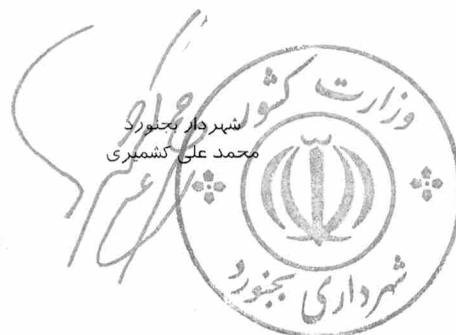 شهردار بجنورد
محمد علی کشمیری
وزارت کشور
شهرداری بجنورد